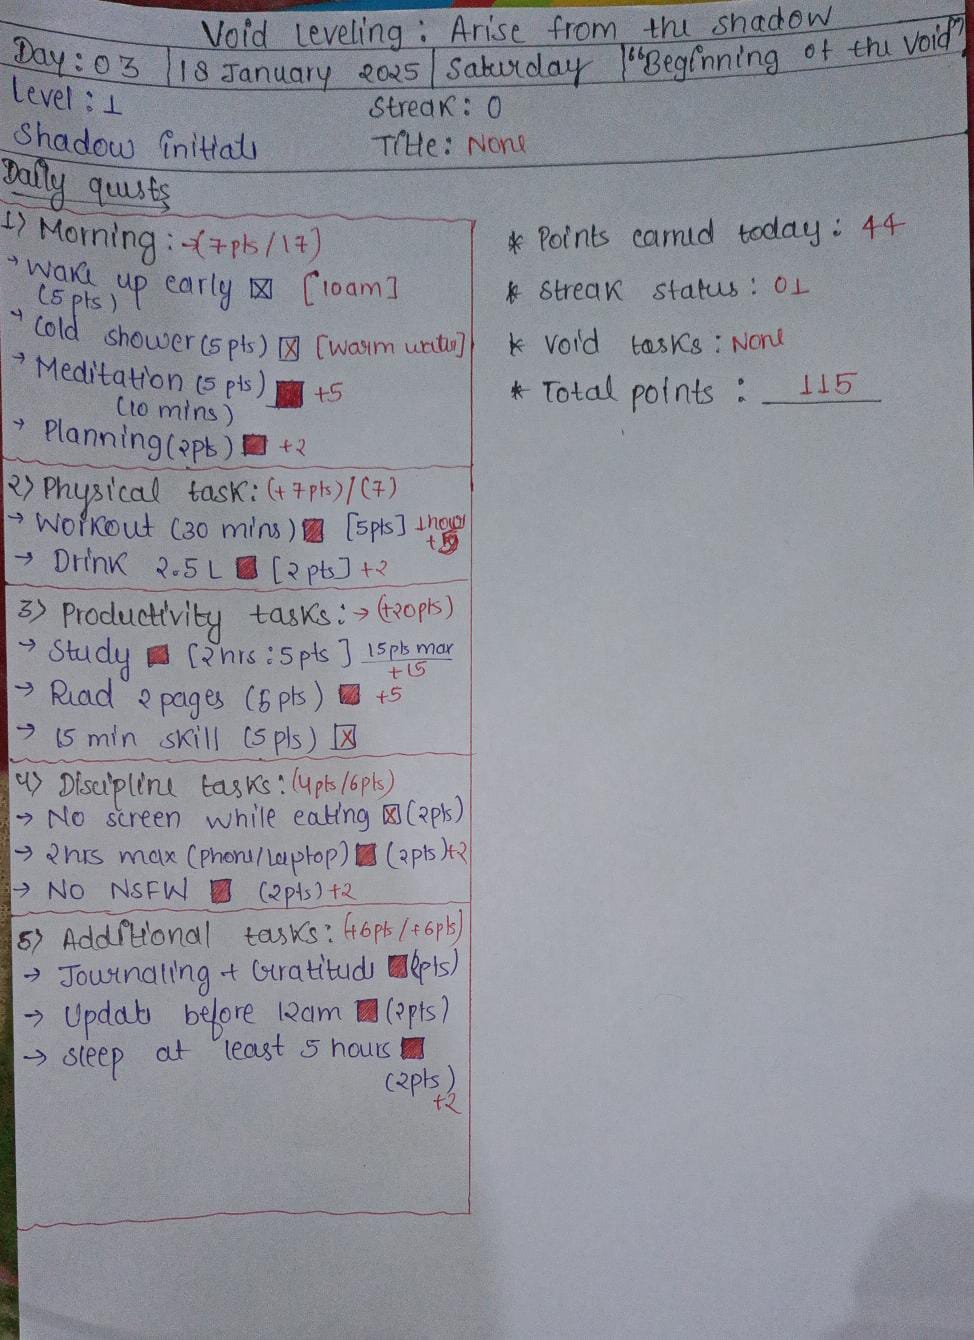 Void Leveling : Arise from the shadow
Day : 03 | 18 January 2025 | Saturday | "Beginning of the Void"
Level : 1
Streak : 0
Shadow initiate
Title : None
Daily quests
1) Morning : → (7pts/17)
→ Wake up early ☒ [10am]
(5 pts)
→ Cold shower (5 pts) ☒ [warm water]
→ Meditation (5 pts) ■ +5
(10 mins)
→ Planning (2pts) ■ +2
2) Physical task : (+7pts)/(7)
→ Workout (30 mins) ■ [5pts] 1hour
+5
→ Drink 2.5 L ■ [2 pts] +2
3) Productivity tasks : → (+20pts)
→ Study ■ [2hrs : 5pts] 15pts max
+15
→ Read 2 pages (5 pts) ■ +5
→ 15 min skill (5 pts) ☒
4) Discipline tasks : (4pts/6pts)
→ No screen while eating ☒ (2pts)
→ 2hrs max (phone/laptop) ■ (2pts) +2
→ NO NSFW ■ (2pts) +2
5) Additional tasks : [+6pts/+6pts]
→ Journaling + Gratitude ■ (2pts)
→ Update before 12am ■ (2pts)
→ sleep at least 5 hours ■
(2pts)
+2
* Points earned today : 44
* Streak status : 01
* Void tasks : None
* Total points : 115